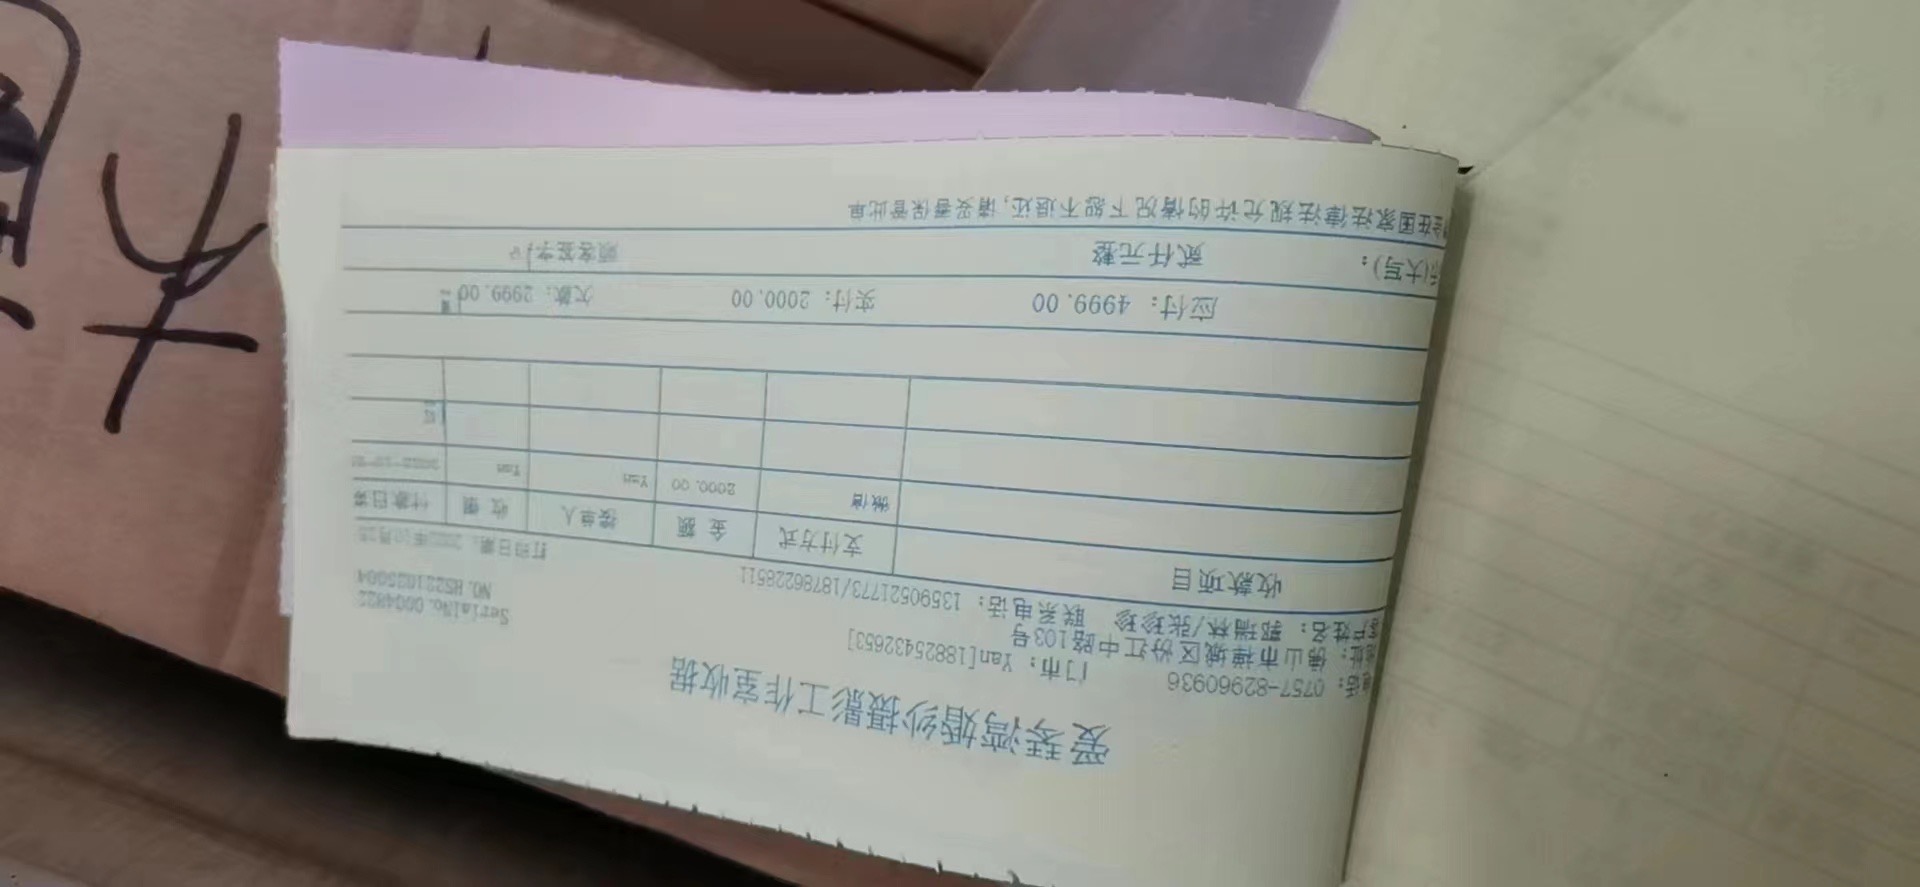 爱琴湾婚纱摄影工作室收据
电话：0757-82960936 门市：Yan[18825432653]
地址：佛山市禅城区汾江中路103号
SerialNo.0004832
客户姓名：郭瑞林/张珍珍 联系电话：13590521773/18786228511
NO.HS221025004
打印日期：2022年10月25
收款项目 支付方式 金额 接单人 收银 付款日期
微信 2000.00 Yan Yan
应付：4999.00 实付：2000.00 欠款：2999.00
(大写)： 贰仟元整 顾客签字
金在国家法律法规允许的情况下恕不退还,请妥善保管此单